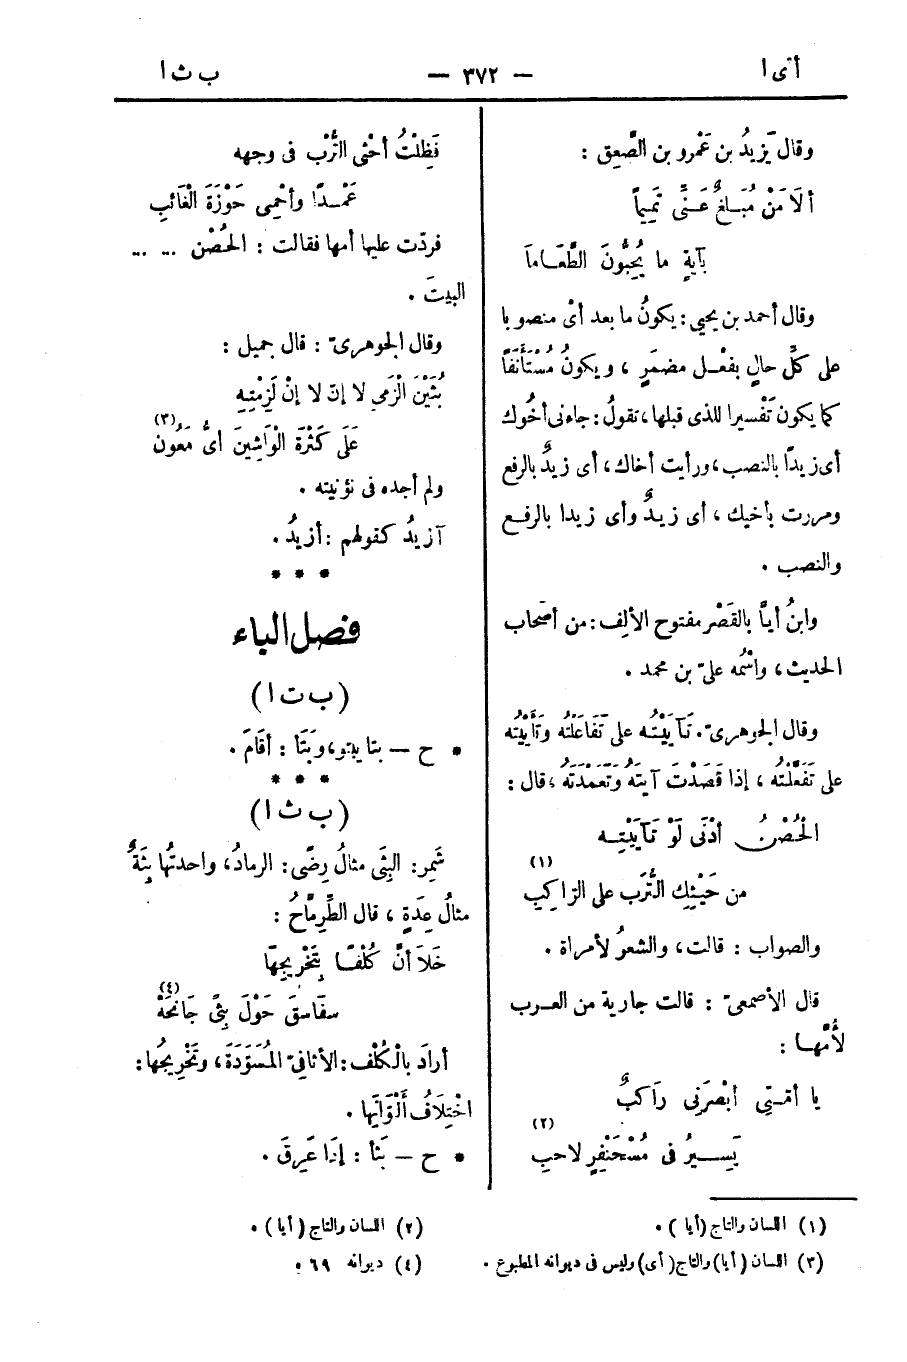 أى ا — ٣٧٢ — ب ث ا
وقال يَزيدُ بن عَمْرو بن الصَّعِق :
ألَا مَنْ مُبَلغٌ عَنِّى تَمِيماً
بآيةِ ما يُحِبُّونَ الطَّعَاماَ
وقال أحمد بن يحيى : يكونُ ما بعد أىْ منصوبا
على كلِّ حالٍ بفعْل مضمَرٍ ، ويكونُ مُسْتَأنَفاً
كما يكون تَفْسيرا للذى قبلها ، تقولُ : جاءنى أخُوك
أى زيدًا بالنصب ، ورأيت أخاك ، أى زيدٌ بالرفع
ومررت بأخيك ، أى زيدٌ وأى زيدا بالرفع
والنصب .
وابنُ أيَّا بالقَصْر مفتوح الألِف : من أصْحاب
الحديث ، واسْمُه علىّ بن محمد .
وقال الجوهرىّ . تَآيَيْتُه على تَفَاعَلْتُه وتَأَيَّيْتُه
على تَفَعَّلْتُه ، إذا قَصَدْتَ آيتَهُ وتَعَمَّدْتَهُ ، قال :
الْحُصْنُ أدْنَى لَوْ تَآيَيْتِهِ
من حَيْثِكِ التُّرَب على الرّاكِبِ (١)
والصواب : قالت ، والشعرُ لأمراة .
قال الأصْمعىّ : قالت جارية من العرب
لأُمِّها :
يا أمَّتِى أبْصَرَنى رَاكبٌ
يَسيرُ فى مُسْحَنْفِرٍ لاحبِ (٢)
فَظِلْتُ أحْثى التُّرْب فى وجهه
عَمْدًا وأحْمِى حَوْزَةَ الْغَائبِ
فردّت عليها أمها فقالت : الحُصْن ... ...
البيتَ .
وقال الجوهرىّ : قال جميل :
بُثَيْنَ الْزَمِى لا إنّ لا إنْ لَزِمْتِهِ
عَلَى كَثْرَةِ الْوَاشِينَ أىُّ مَعُون (٣)
ولم أجده فى نؤنيته .
آزيدُ كقولهم : أزيدُ .
* * *
فصل الباء
( ب ت ا )
* ح — بتا يبتو ، وبَتَأ : أقَامَ .
* * *
( ب ث ا )
شَمِر : البِثَى مثالُ رِضًى : الرمادُ ، واحدتُها بِثَةٌ
مثالُ عِدَةٍ ، قال الطِّرِمَّاحُ :
خَلَا أنَّ كُلْفًا بِتَخْرِيجِهَا
سفَاسقَ حَوْلَ بِثًى جَانحَهْ (٤)
أرادَ بالْكُلْف : الأثافىّ المُسْوَدّةَ ، وتَخْرِيجُها :
اخْتِلَافُ أَلْوَانِها .
* ح — بَثَأ : إذَا عَرِقَ .
(١) اللسان والتاج (أيا) .
(٢) اللسان والتاج (أيا) .
(٣) اللسان (أيا) والتاج (أى) وليس فى ديوانه المطبوع .
(٤) ديوانه ٦٩ .